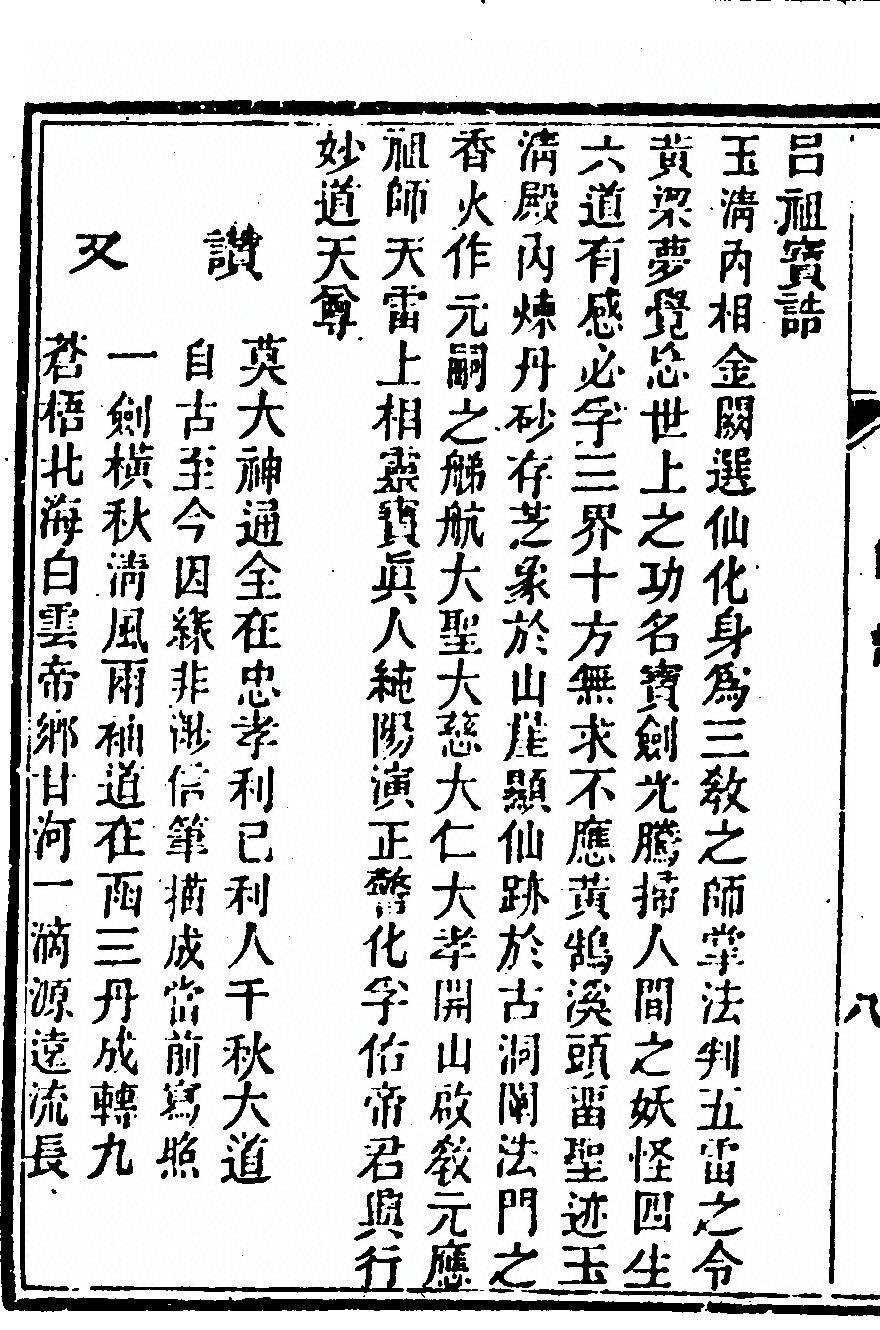 呂祖寶誥
玉淸內相金闕選仙化身爲三敎之師掌法判五雷之令
黃粱夢覺忘世上之功名寶劍光騰掃人間之妖怪四生
六道有感必孚三界十方無求不應黃鵠溪頭畱聖迹玉
淸殿內煉丹砂存芝象於山崖顯仙跡於古洞闡法門之
香火作元嗣之梯航大聖大慈大仁大孝開山啟敎元應
祖師天雷上相靈寶眞人純陽演正警化孚佑帝君興行
妙道天尊
讚
莫大神通全在忠孝利己利人千秋大道
自古至今因緣非渺信筆描成當前寫照
又
一劍橫秋淸風兩袖道在函三丹成轉九
蒼梧北海白雲帝鄉甘河一滴源遠流長
八